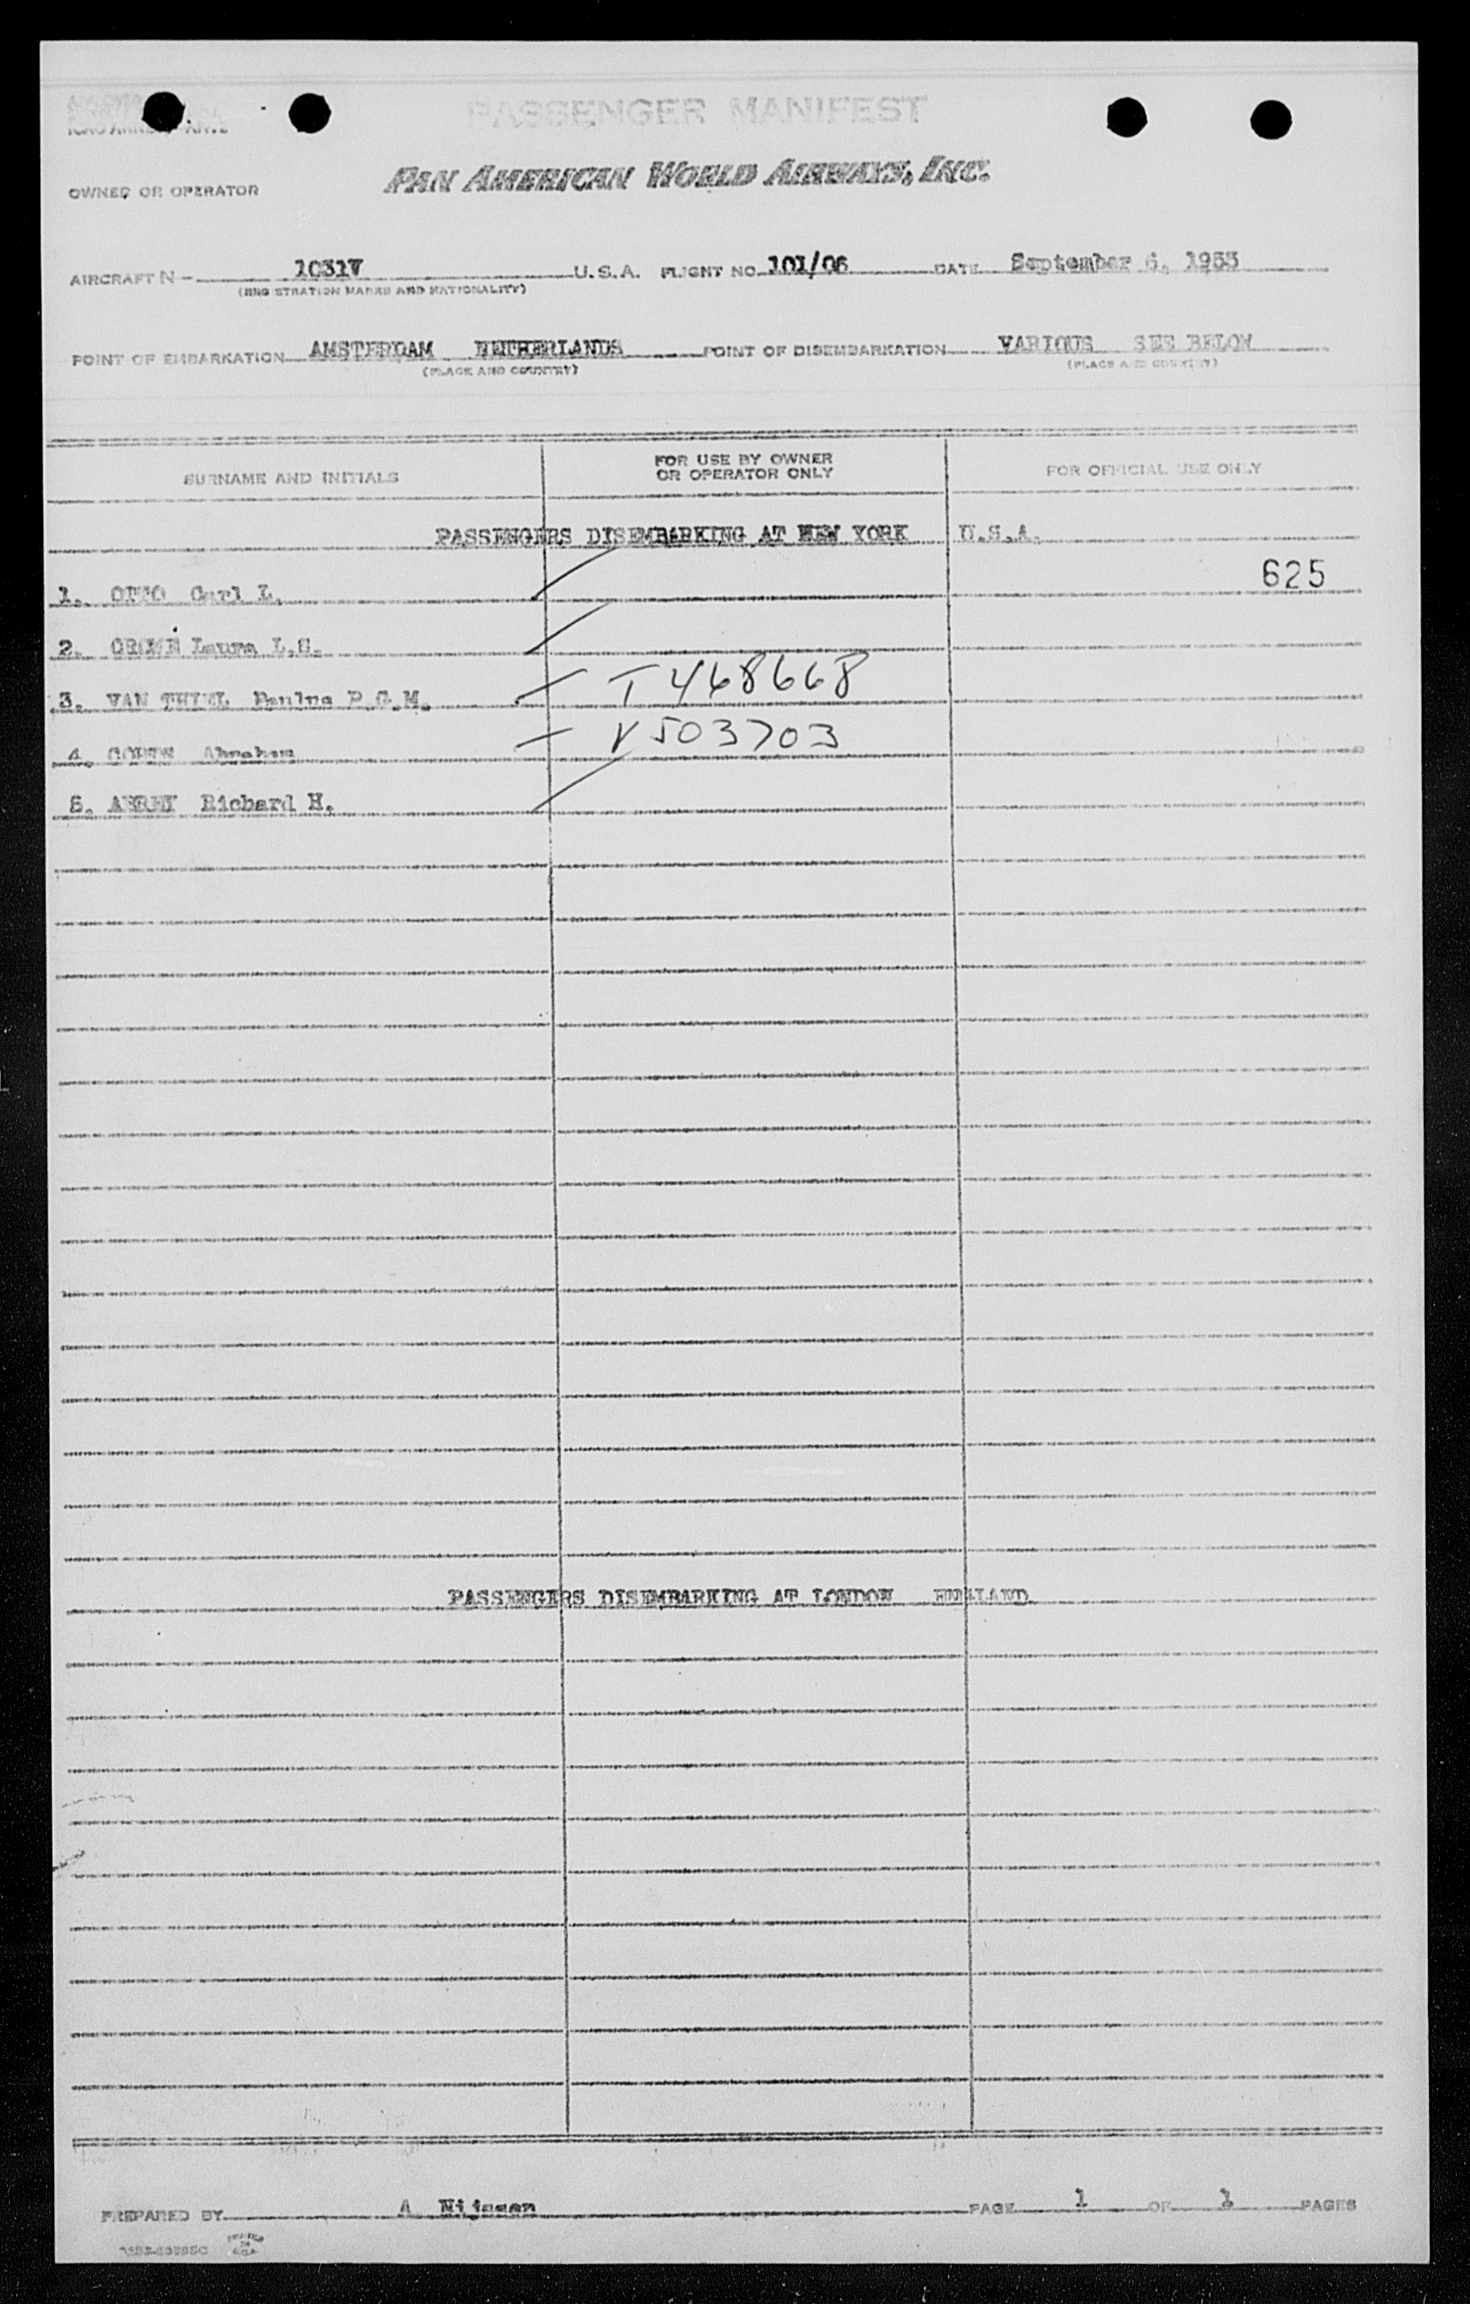 PASSENGER MANIFEST
OWNER OR OPERATOR PAN AMERICAN WORLD AIRWAYS, INC.
AIRCRAFT N- 1031V U.S.A. FLIGHT NO. 101/06 DATE September 6, 1955
(REGISTRATION MARKS AND NATIONALITY)
POINT OF EMBARKATION AMSTERDAM NETHERLANDS POINT OF DISEMBARKATION VARIOUS SEE BELOW
(PLACE AND COUNTRY) (PLACE AND COUNTRY)
SURNAME AND INITIALS FOR USE BY OWNER OR OPERATOR ONLY FOR OFFICIAL USE ONLY
PASSENGERS DISEMBARKING AT NEW YORK U.S.A.
625
1. OTTO Carl L.
2. Laura L.S.
3. VAN THIEL Paulus P.G.M. T468668
4. Abraham V503703
5. Richard H.
PASSENGERS DISEMBARKING AT LONDON ENGLAND
PREPARED BY A Nijssen PAGE 1 OF 1 PAGES